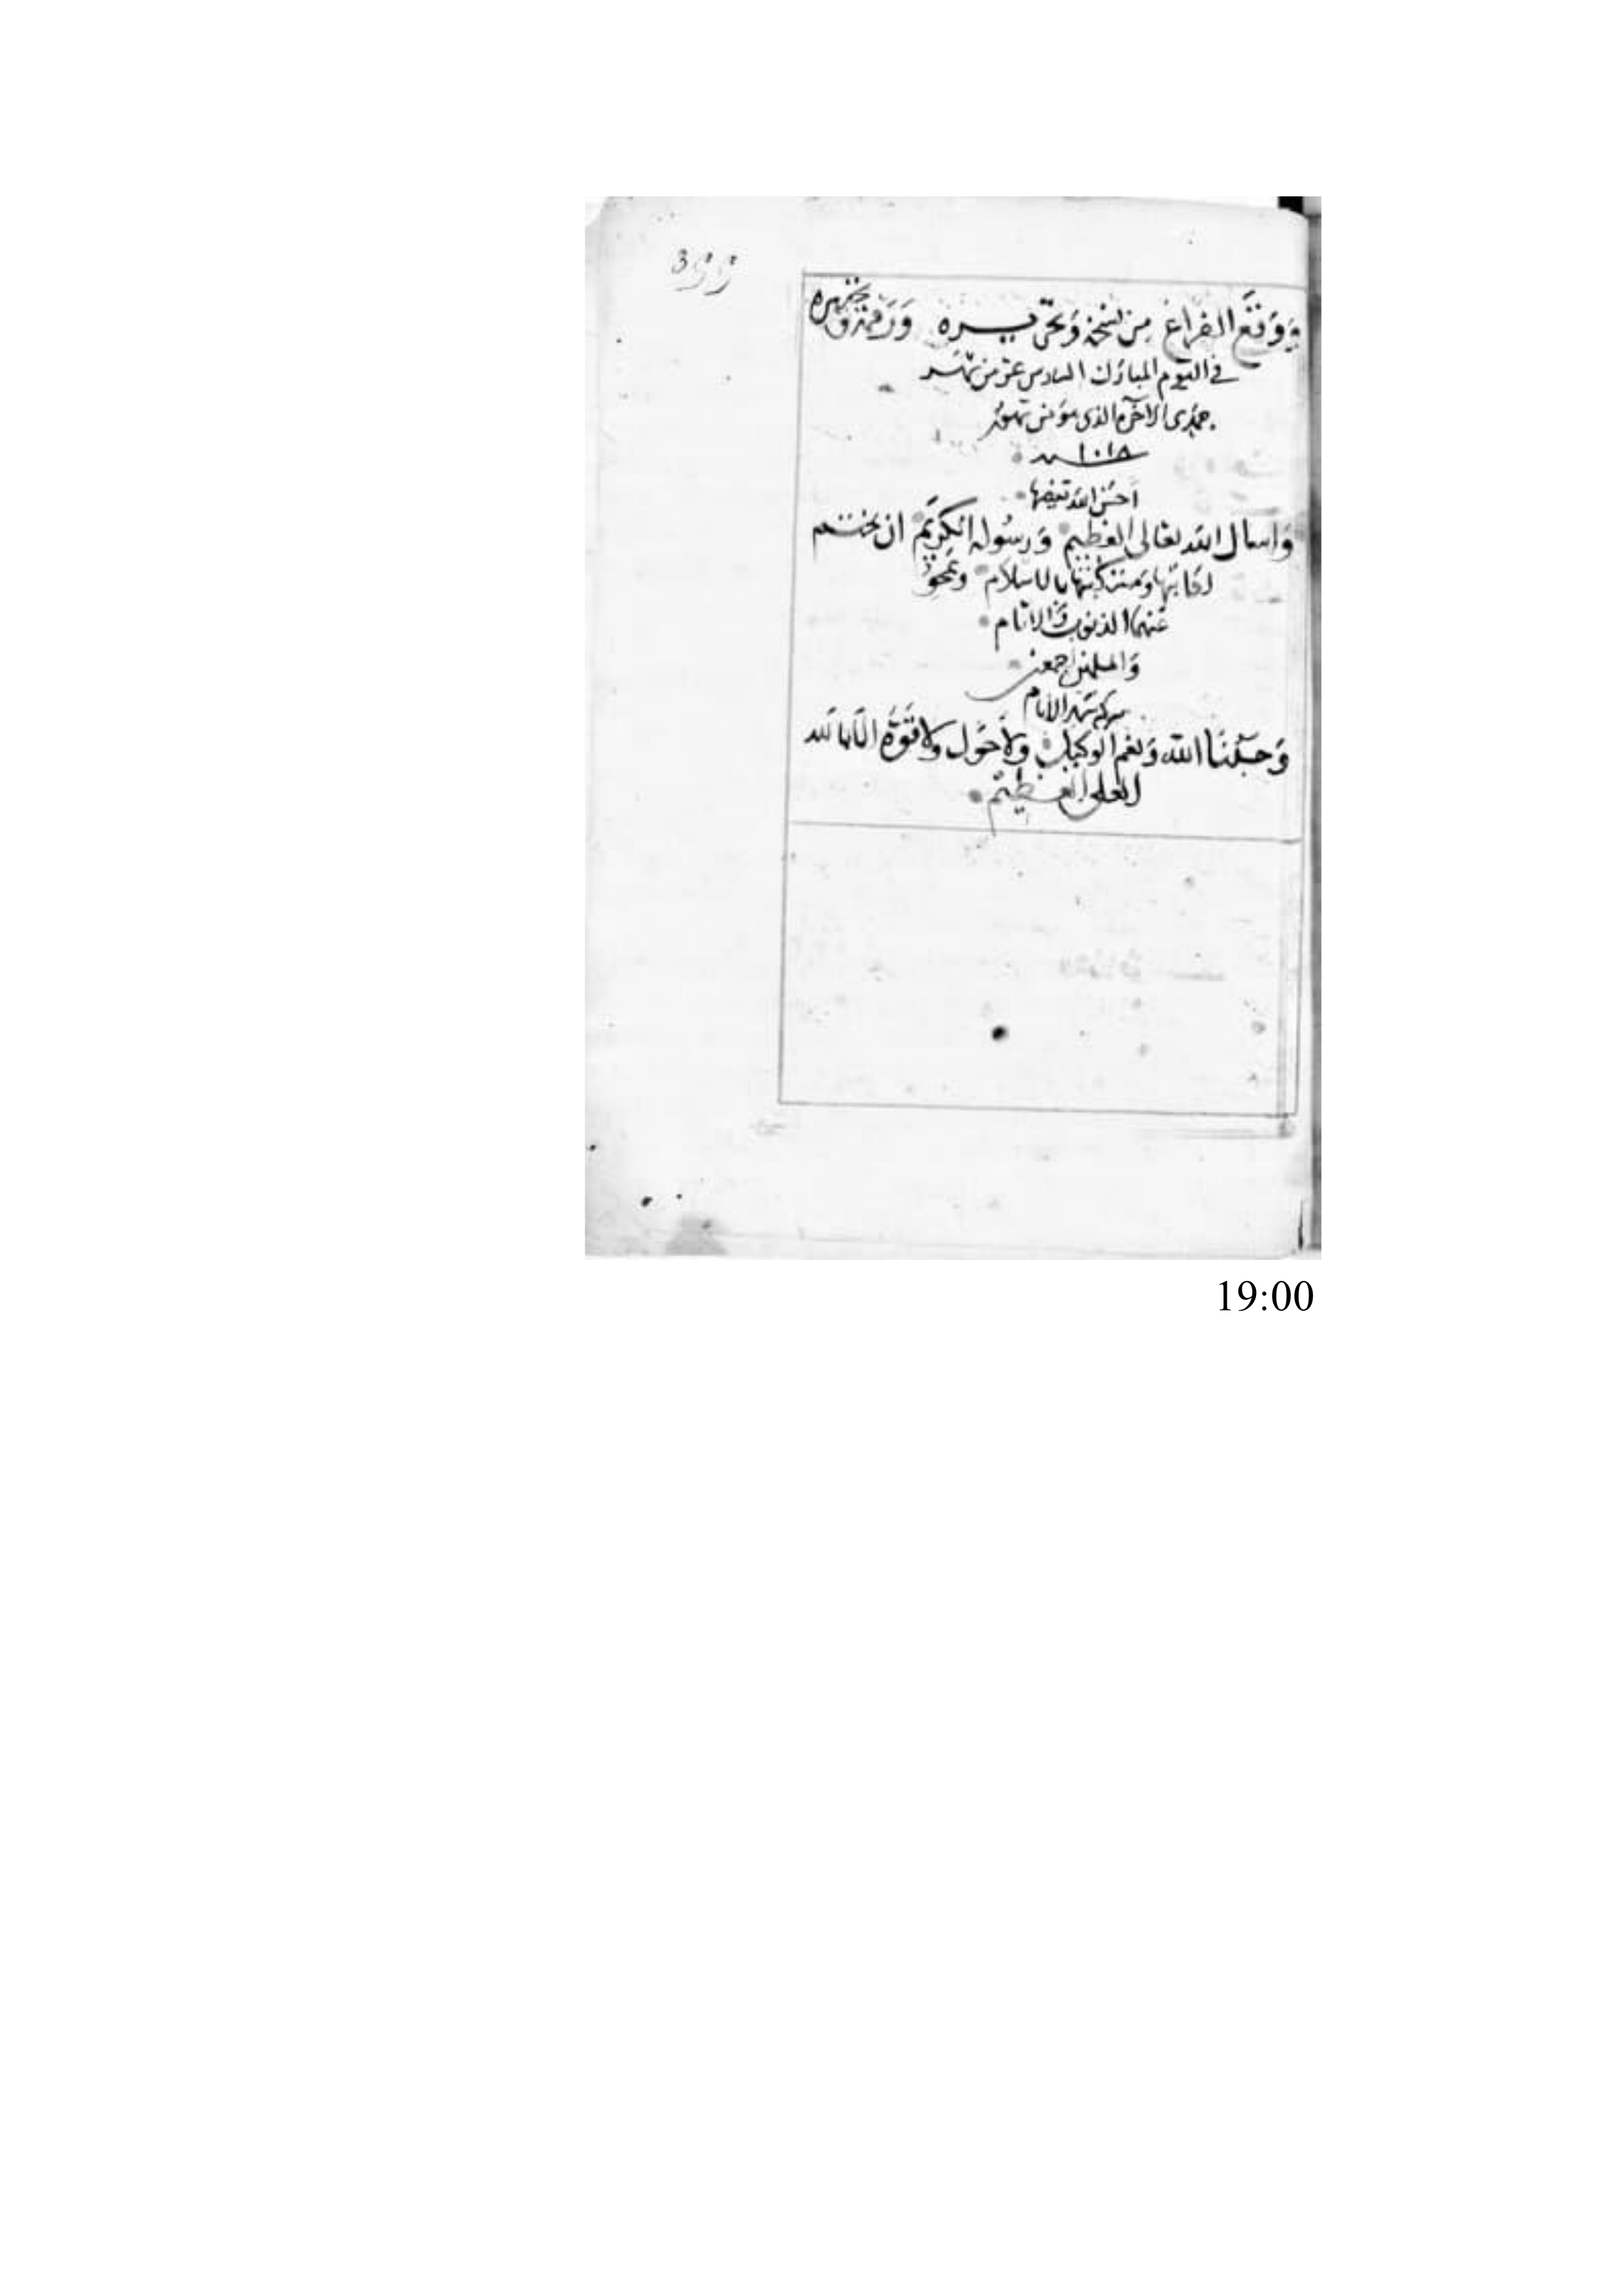 ووقع الفراغ من نسخه وتحريره ورقمه و
في اليوم المبارك السادس عشر من شهر
جمدى الاخره الذى هو من شهور
سنة ١٠١٨
احسن الله تقضيها
واسال الله تعالى العظيم ورسوله الكريم ان يختم
لكاتبها و بالاسلام ويمحو
عنهما الذنوب والاثام
والمسلمين اجمعين
الانام
وحسبنا الله ونعم الوكيل ولا حول ولا قوة الا بالله
العلى العظيم
19:00